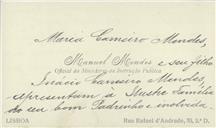 Maria Carneiro Mendes,
Manuel Mendes e seu filho
Oficial do Ministério da Instrução Pública
Inácio Carneiro Mendes,
apresentam à Ilustre Família
do seu bom Padrinho e
LISBOA
Rua Rafael d'Andrade, 2.º D.